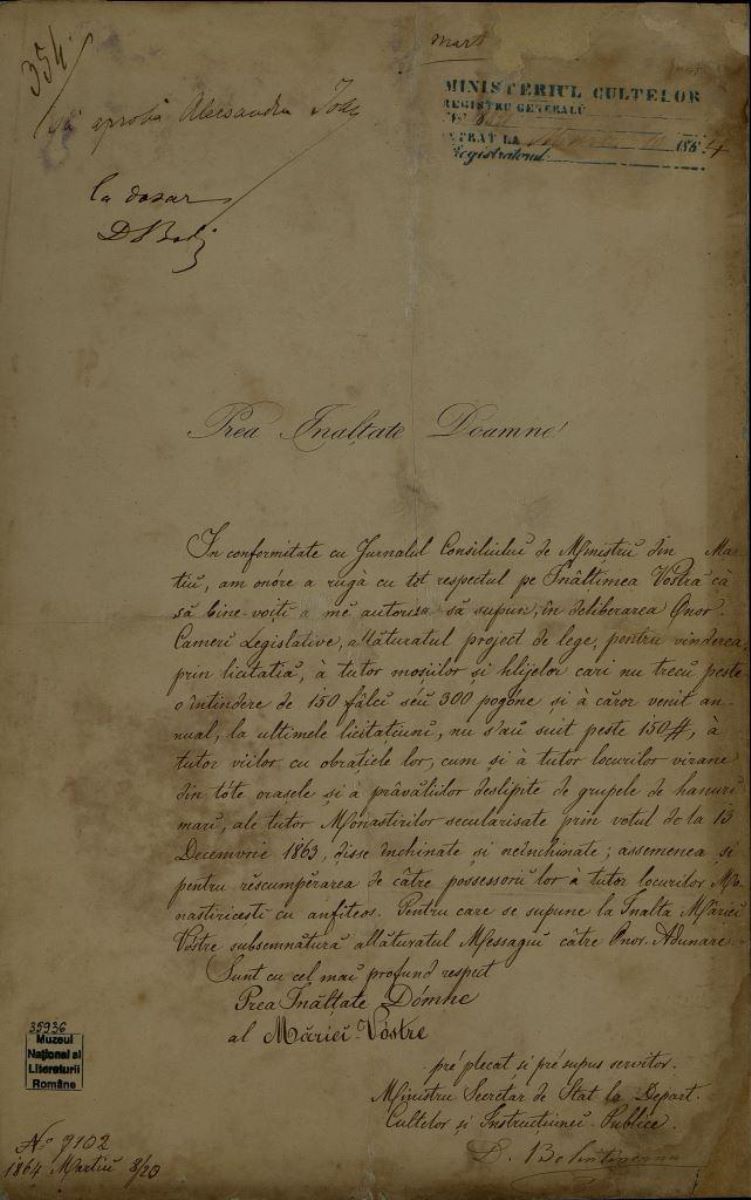 354
Mart
Să aprobă Alecsandru Ioan
MINISTERIUL CULTELOR
REGISTRU GENERALŬ
INTRAT LA 1864
Registratorul
La dosar
D Bol
Prea Inalțate Doamne
In conformitate cu Jurnalul Consiliului de Miniștriĭ din Mar-
tiŭ, am onóre a rugà cu tot respectul pe Înălțimea Vostră că
să bine-voiți a mĕ autorisa să supun, în deliberarea Onor.
Camerĭ Legislative, alăturatul project de lege, pentru vinderea,
prin licitatiă, à tutor moșiilor și hlijelor cari nu trecŭ peste
o întindere de 150 fălcĭ sĕu 300 pogóne și à căror venit an-
nual, la ultimele licitatiunĭ, nu s'aŭ suit peste 150 #, à
tutor viilor cu obrațiele lor, cum și à tutor locurilor virane
din tóte orașele și à prăvăliilor deslipite de grupele de hanurĭ
marĭ, ale tutor Monastirilor secularisate prin votul de la 13
Decemvrie 1863, disse închinate și neînchinate; assemenea și
pentru rĕscumpĕrarea de către possessoriĭ lor à tutor locurilor Mo-
nastiricesti cu anfiteos. Pentru care se supune la Înalta Măriei
Vóstre subsemnătură alăturatul Messagiŭ către Onor. Adunare.
Sunt cu cel maĭ profund respect
Prea Inălțate Dómne
al Măriei Vóstre
pré plecat și pré supus servitor.
Ministru Secretar de Stat la Depart.
Cultelor și Instrucțiuneĭ Publice.
D. Bolintineanu
35936
Muzeul
Național al
Literaturii
Române
No 9102
1864 Martiŭ 8/20